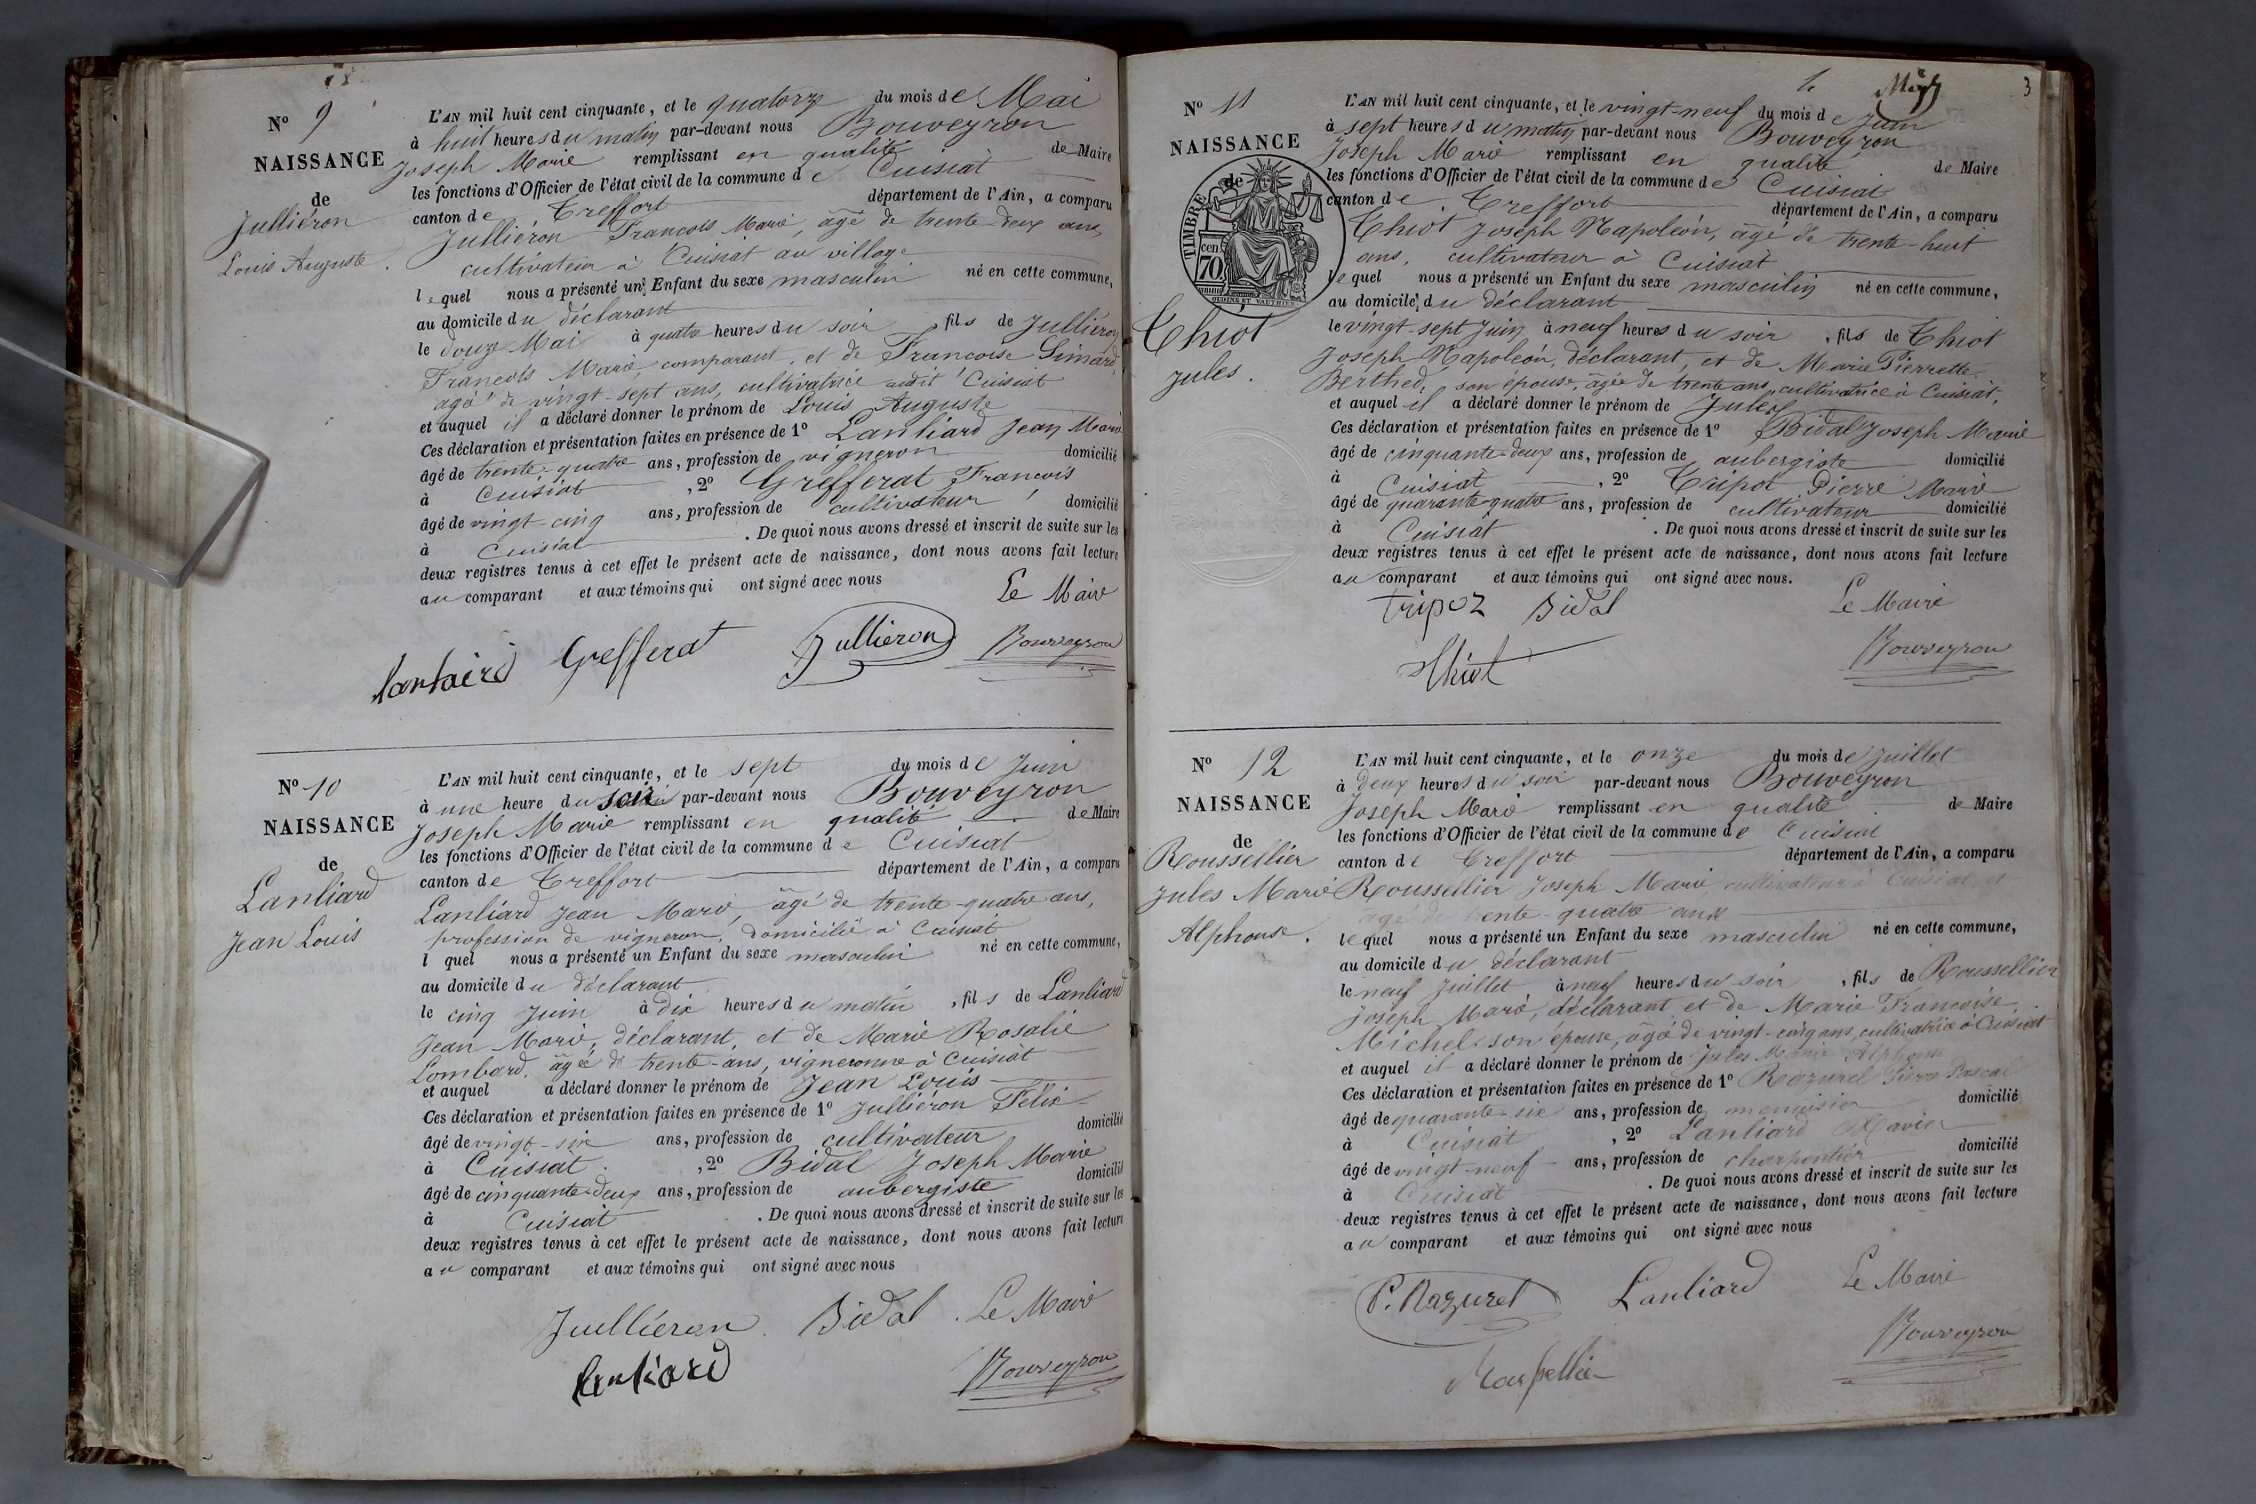 Nº 9
NAISSANCE
de
Julliéron
Louis Auguste.
L'AN mil huit cent cinquante, et le quatorze du mois de Mai
à huit heures du matin par-devant nous Bouveyron
Joseph Marie remplissant en qualité de Maire
les fonctions d'Officier de l'état civil de la commune de Cuisiat
canton de Treffort département de l'Ain, a comparu
Julliéron François Marie, âgé de trente-deux ans,
cultivateur à Cuisiat au village
lequel nous a présenté un Enfant du sexe masculin né en cette commune,
au domicile du déclarant
le douze Mai à quatre heures du soir, fils de Julliéron
François Marie, comparant, et de Francoise
agé de vingt-sept ans, cultivatrice audit Cuisiat
et auquel il a déclaré donner le prénom de Louis Auguste
Ces déclaration et présentation faites en présence de 1º Lanliard Jean Marie
âgé de trente-quatre ans, profession de vigneron domicilié
à Cuisiat, 2º Grefferat François
âgé de vingt-cinq ans, profession de cultivateur domicilié
à Cuisiat. De quoi nous avons dressé et inscrit de suite sur les
deux registres tenus à cet effet le présent acte de naissance, dont nous avons fait lecture
au comparant et aux témoins qui ont signé avec nous
Le Maire
Grefferat Jullieron Bouveyron
Nº 10
NAISSANCE
de
Lanliard
Jean Louis
L'AN mil huit cent cinquante, et le sept du mois de Juin
à une heure du soir par-devant nous Bouveyron
Joseph Marie remplissant en qualité de Maire
les fonctions d'Officier de l'état civil de la commune de Cuisiat
canton de Treffort département de l'Ain, a comparu
Lanliard Jean Marie, âgé de trente-quatre ans,
profession de vigneron, domicilié à Cuisiat
l quel nous a présenté un Enfant du sexe masculin né en cette commune,
au domicile du déclarant
le cinq Juin à dix heures du matin, fils de Lanliard
Jean Marie, déclarant, et de Marie Rosalie
Lombard, âgée de trente-ans, vigneronne à Cuisiat
et auquel a déclaré donner le prénom de Jean Louis
Ces déclaration et présentation faites en présence de 1º Julliéron Félix
âgé de vingt-six ans, profession de cultivateur domicilié
à Cuisiat, 2º Bidal Joseph Marie
âgé de cinquante-deux ans, profession de aubergiste domicilié
à Cuisiat. De quoi nous avons dressé et inscrit de suite sur les
deux registres tenus à cet effet le présent acte de naissance, dont nous avons fait lecture
au comparant et aux témoins qui ont signé avec nous
Juillieron. Bidal. Le Maire
Lanliard Bouveyron
3
Nº 11
NAISSANCE
de
TIMBRE
cen
70
Thiot
Jules.
L'AN mil huit cent cinquante, et le vingt-neuf du mois de Juin
à sept heures du matin par-devant nous Bouveyron
Joseph Marie remplissant en qualité de Maire
les fonctions d'Officier de l'état civil de la commune de Cuisiat
canton de Treffort département de l'Ain, a comparu
Thiot Joseph Napoléon, âgé de trente-huit
ans, cultivateur à Cuisiat
lequel nous a présenté un Enfant du sexe masculin né en cette commune,
au domicile du déclarant
le vingt-sept Juin à neuf heures du soir, fils de Thiot
Joseph Napoléon, déclarant, et de Marie Pierrette
Berthed, son épouse, âgée de trente ans, cultivatrice à Cuisiat,
et auquel il a déclaré donner le prénom de Jules
Ces déclaration et présentation faites en présence de 1º Bidal Joseph Marie
âgé de cinquante-deux ans, profession de aubergiste domicilié
à Cuisiat, 2º Tripot Pierre Marie
âgé de quarante-quatre ans, profession de cultivateur domicilié
à Cuisiat. De quoi nous avons dressé et inscrit de suite sur les
deux registres tenus à cet effet le présent acte de naissance, dont nous avons fait lecture
au comparant et aux témoins qui ont signé avec nous.
Tripoz Bidal Le Maire
Thiot Bouveyron
Nº 12
NAISSANCE
de
Roussellier
Jules Marie
Alphonse.
L'AN mil huit cent cinquante, et le onze du mois de Juillet
à deux heures du soir par-devant nous Bouveyron
Joseph Marie remplissant en qualité de Maire
les fonctions d'Officier de l'état civil de la commune de Cuisiat
canton de Treffort département de l'Ain, a comparu
Roussellier Joseph Marie cultivateur à Cuisiat, et
âgé de trente-quatre ans
lequel nous a présenté un Enfant du sexe masculin né en cette commune,
au domicile du déclarant
le neuf Juillet à neuf heures du soir, fils de Roussellier
Joseph Marie, déclarant et de Marie Françoise
Michel son épouse, âgé de vingt-cinq ans, cultivatrice à Cuisiat
et auquel il a déclaré donner le prénom de Jules Marie Alphonse
Ces déclaration et présentation faites en présence de 1º Razurel Pierre Pascal
âgé de quarante-six ans, profession de menuisier domicilié
à Cuisiat, 2º Lanliard Xavier
âgé de vingt-neuf ans, profession de charpentier domicilié
à Cuisiat. De quoi nous avons dressé et inscrit de suite sur les
deux registres tenus à cet effet le présent acte de naissance, dont nous avons fait lecture
au comparant et aux témoins qui ont signé avec nous
P. Razurel Lanliard Le Maire
Bouveyron